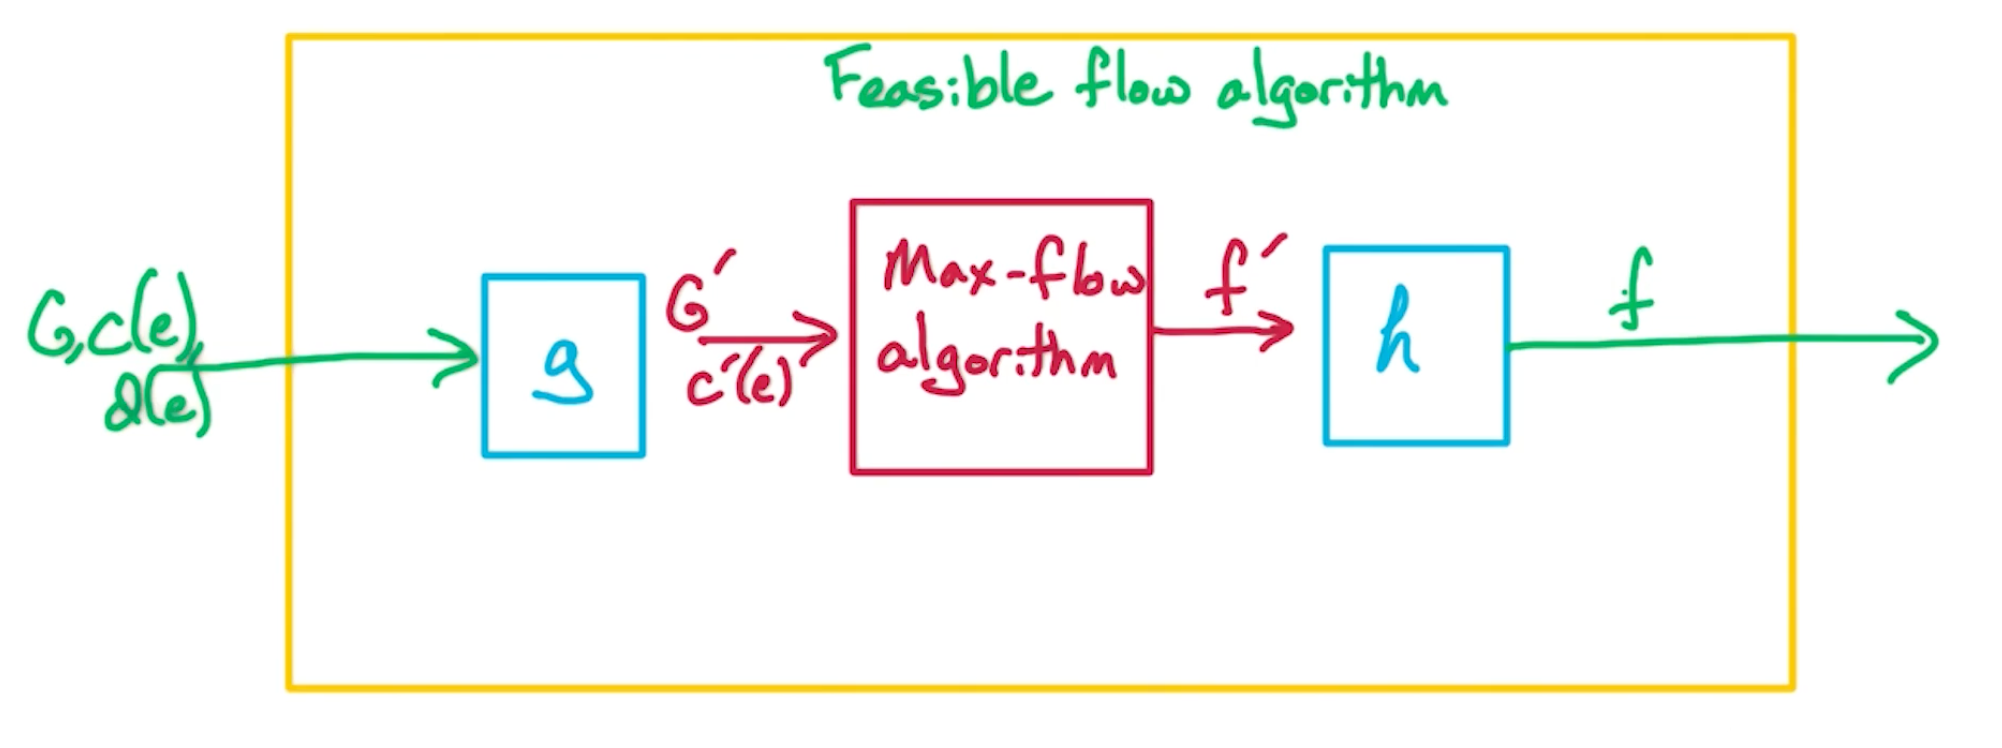 Feasible flow algorithm
G, c(e),
d(e)
g
G'
c'(e)
Max-flow
algorithm
f'
h
f